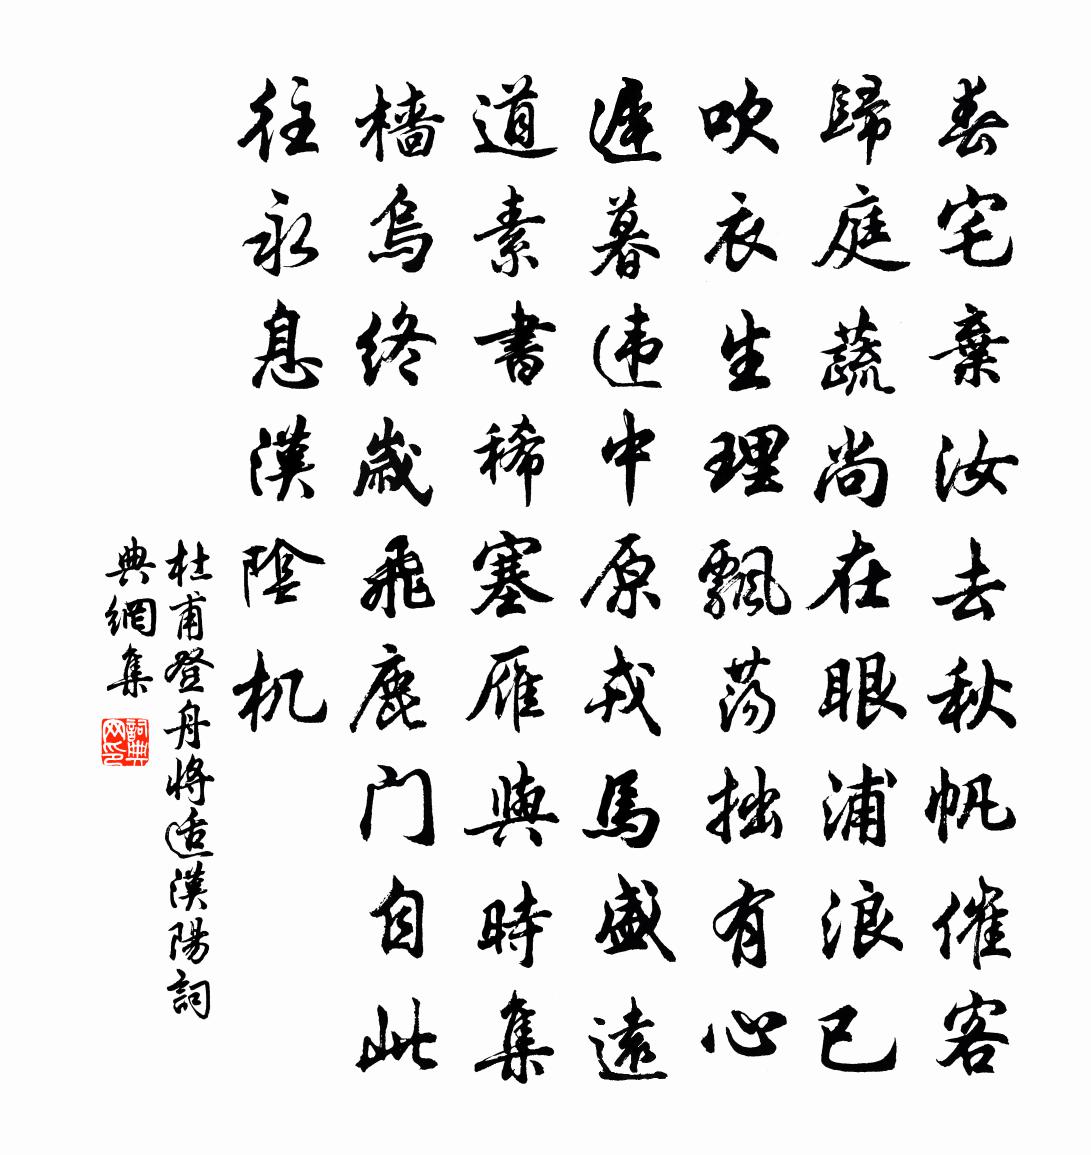 春宅棄汝去秋帆催客
歸庭蔬尚在眼浦浪已
吹衣生理飄蕩拙有心
遲暮违中原戎馬盛遠
道素書稀塞雁與時集
檣烏終歲飛鹿門自此
往永息漢陰机
杜甫登舟將适漢陽詞
典網集
詞典
网印